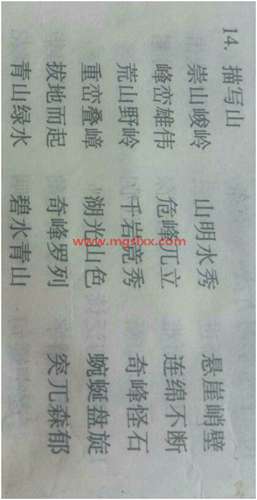 14. 描写山
崇山峻岭 山明水秀 悬崖峭壁
峰峦雄伟 危峰兀立 连绵不断
荒山野岭 千岩竞秀 奇峰怪石
重峦叠嶂 湖光山色 蜿蜒盘旋
拔地而起 奇峰罗列 突兀森郁
青山绿水 碧水青山
www.mgslxx.com